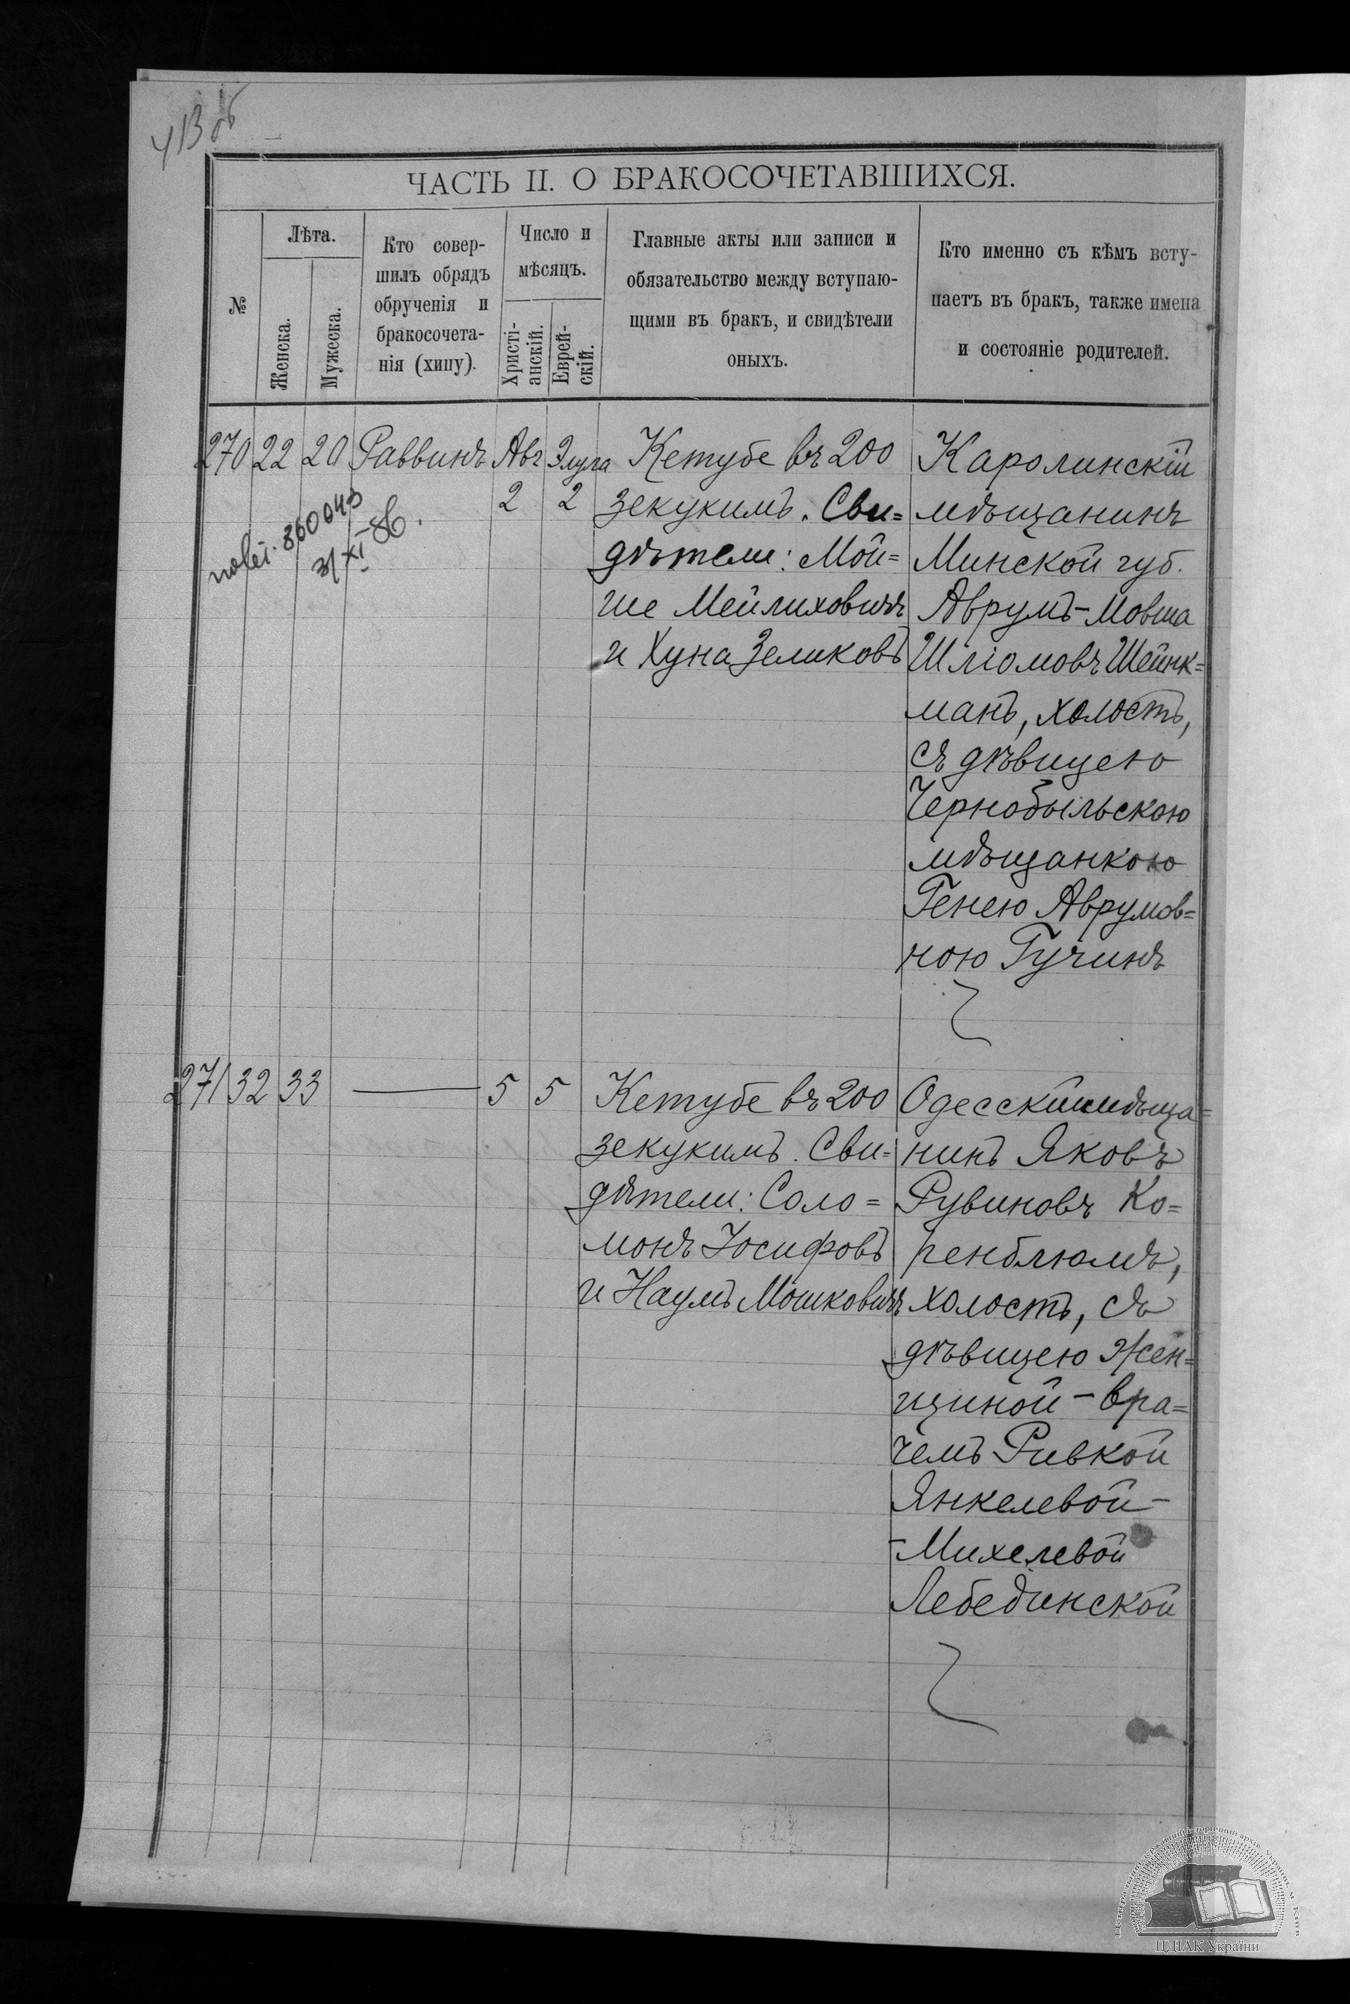 413 об
ЧАСТЬ II. О БРАКОСОЧЕТАВШИХСЯ.
№
Лѣта.
Женска.
Мужеска.
Кто совер-
шилъ обрядъ
обрученія и
бракосочета-
нія (хипу).
Число и
мѣсяцъ.
Христі-
анскій.
Еврей-
скій.
Главные акты или записи и
обязательство между вступаю-
щими въ бракъ, и свидѣтели
оныхъ.
Кто именно съ кѣмъ всту-
паетъ въ бракъ, также имена
и состояніе родителей.
270 22 20 Раввинъ Авг Элула
2 2
31/XI 86.
Кетубе въ 200
зекукимъ. Сви=
дѣтели: Мой=
ше Мейлиховичъ
и Хуна Зеликовъ
Каролинскій
мѣщанинъ
Минской губ.
Аврумъ-Мовша
Шліомовъ Шейнк=
манъ, холостъ,
съ дѣвицею
Чернобыльскою
мѣщанкою
Генею Аврумов=
ною Гучинъ
271 32 33 — 5 5
Кетубе въ 200
зекукимъ. Сви=
дѣтели: Соло=
монъ Іосифовъ
и Наумъ Мошковичъ
Одесскій мѣща=
нинъ Яковъ
Рувиновъ Ко=
ренблюмъ,
холостъ, съ
дѣвицею Жен=
щиной-вра=
чемъ Ривкой
Янкелевой-
-Михелевой
Лебединской
ЦДІАК України